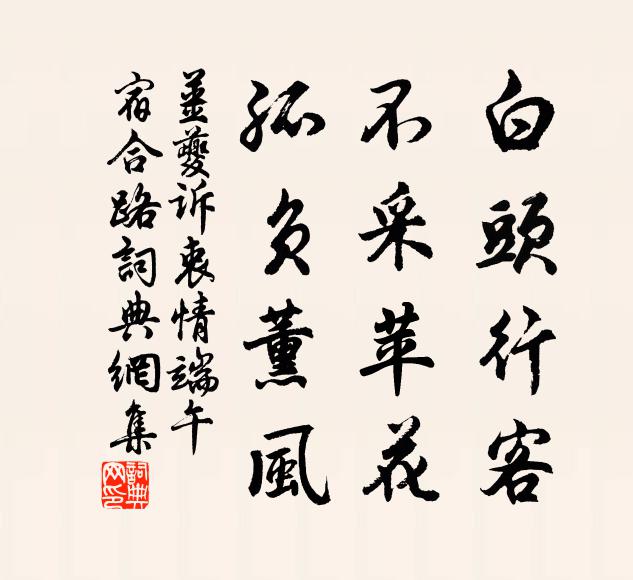 白頭行客
不采苹花
孤負薰風
薑夔訴衷情端午
宿合路詞典網集
詞典网印